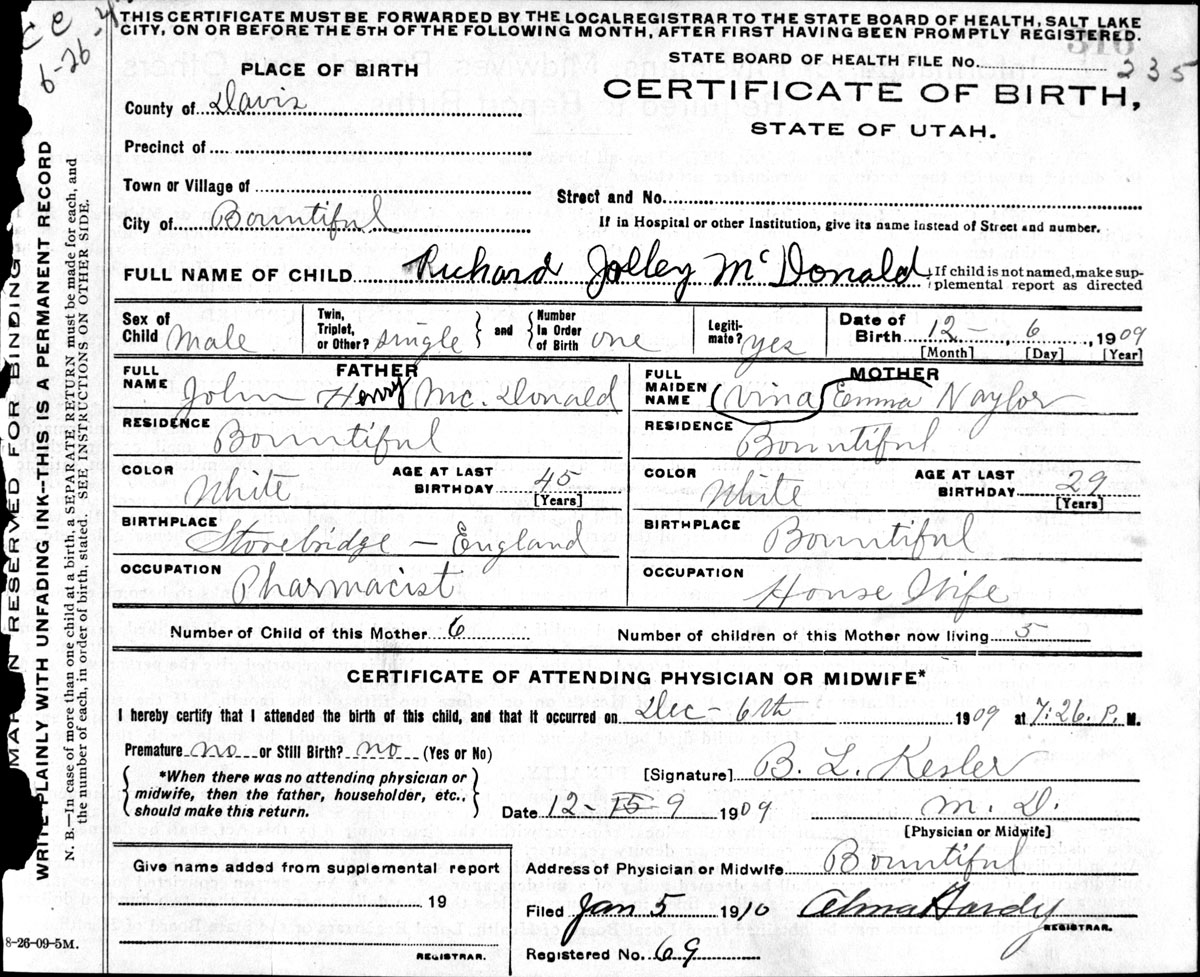 THIS CERTIFICATE MUST BE FORWARDED BY THE LOCAL REGISTRAR TO THE STATE BOARD OF HEALTH, SALT LAKE
CITY, ON OR BEFORE THE 5TH OF THE FOLLOWING MONTH, AFTER FIRST HAVING BEEN PROMPTLY REGISTERED.
6-26
STATE BOARD OF HEALTH FILE No. 235
PLACE OF BIRTH
CERTIFICATE OF BIRTH,
STATE OF UTAH.
County of Davis
Precinct of
Town or Village of
Street and No.
City of Bountiful
If in Hospital or other Institution, give its name instead of Street and number.
FULL NAME OF CHILD Richard Jolley McDonald
If child is not named, make sup-
plemental report as directed
Sex of Child Male
Twin, Triplet, or Other? single
and Number in Order of Birth one
Legiti-mate? yes
Date of Birth 12 - 6, 1909
[Month] [Day] [Year]
FATHER
FULL NAME John Henry Mc. Donald
RESIDENCE Bountiful
COLOR White
AGE AT LAST BIRTHDAY 45
[Years]
BIRTHPLACE Storebridge - England
OCCUPATION Pharmacist
MOTHER
FULL MAIDEN NAME (Vina) Emma Naylor
RESIDENCE Bountiful
COLOR White
AGE AT LAST BIRTHDAY 29
[Years]
BIRTHPLACE Bountiful
OCCUPATION House Wife
Number of Child of this Mother 6 Number of children of this Mother now living 5
CERTIFICATE OF ATTENDING PHYSICIAN OR MIDWIFE*
I hereby certify that I attended the birth of this child, and that it occurred on Dec 6th 1909 at 7:26. P. M.
Premature no or Still Birth? no (Yes or No)
*When there was no attending physician or
midwife, then the father, householder, etc.,
should make this return.
[Signature] B. L. Kesler
Date 12 - 15 - 9 1909 M. D.
[Physician or Midwife]
Give name added from supplemental report
19
REGISTRAR.
Address of Physician or Midwife Bountiful
Filed Jan 5 1910 Alma Hardy
REGISTRAR.
Registered No. 69
8-26-09-5M.
MARGIN RESERVED FOR BINDING
WRITE PLAINLY WITH UNFADING INK—THIS IS A PERMANENT RECORD
N. B.—In case of more than one child at a birth, SEPARATE RETURN must be made for each, and
the number of each, in order of birth, stated. SEE INSTRUCTIONS ON OTHER SIDE.